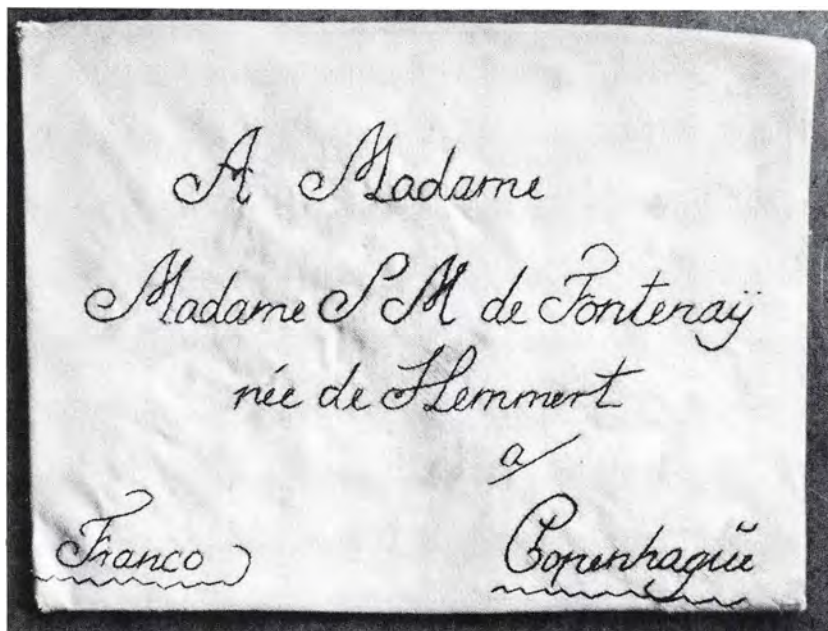 A Madame
Madame S M de Fontenaÿ
née de Hemmert
a/
Franco Copenhagüe